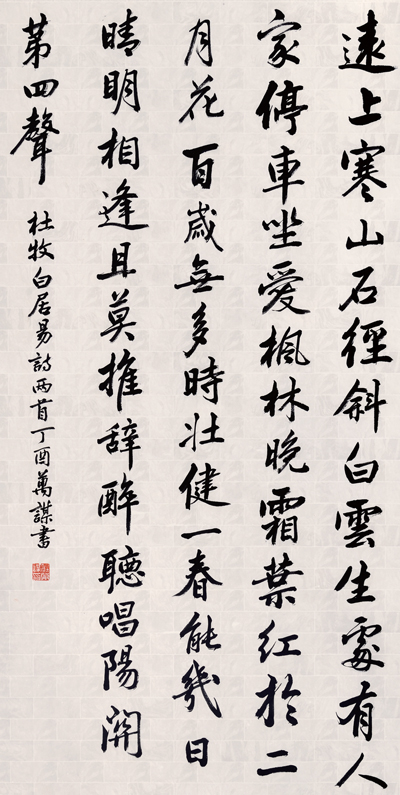 遠上寒山石徑斜白雲生處有人
家停車坐愛楓林晚霜葉紅於二
月花百歲無多時壯健一春能幾日
晴明相逢且莫推辭醉聽唱陽関
第四聲
杜牧白居易詩兩首丁酉萬謀書